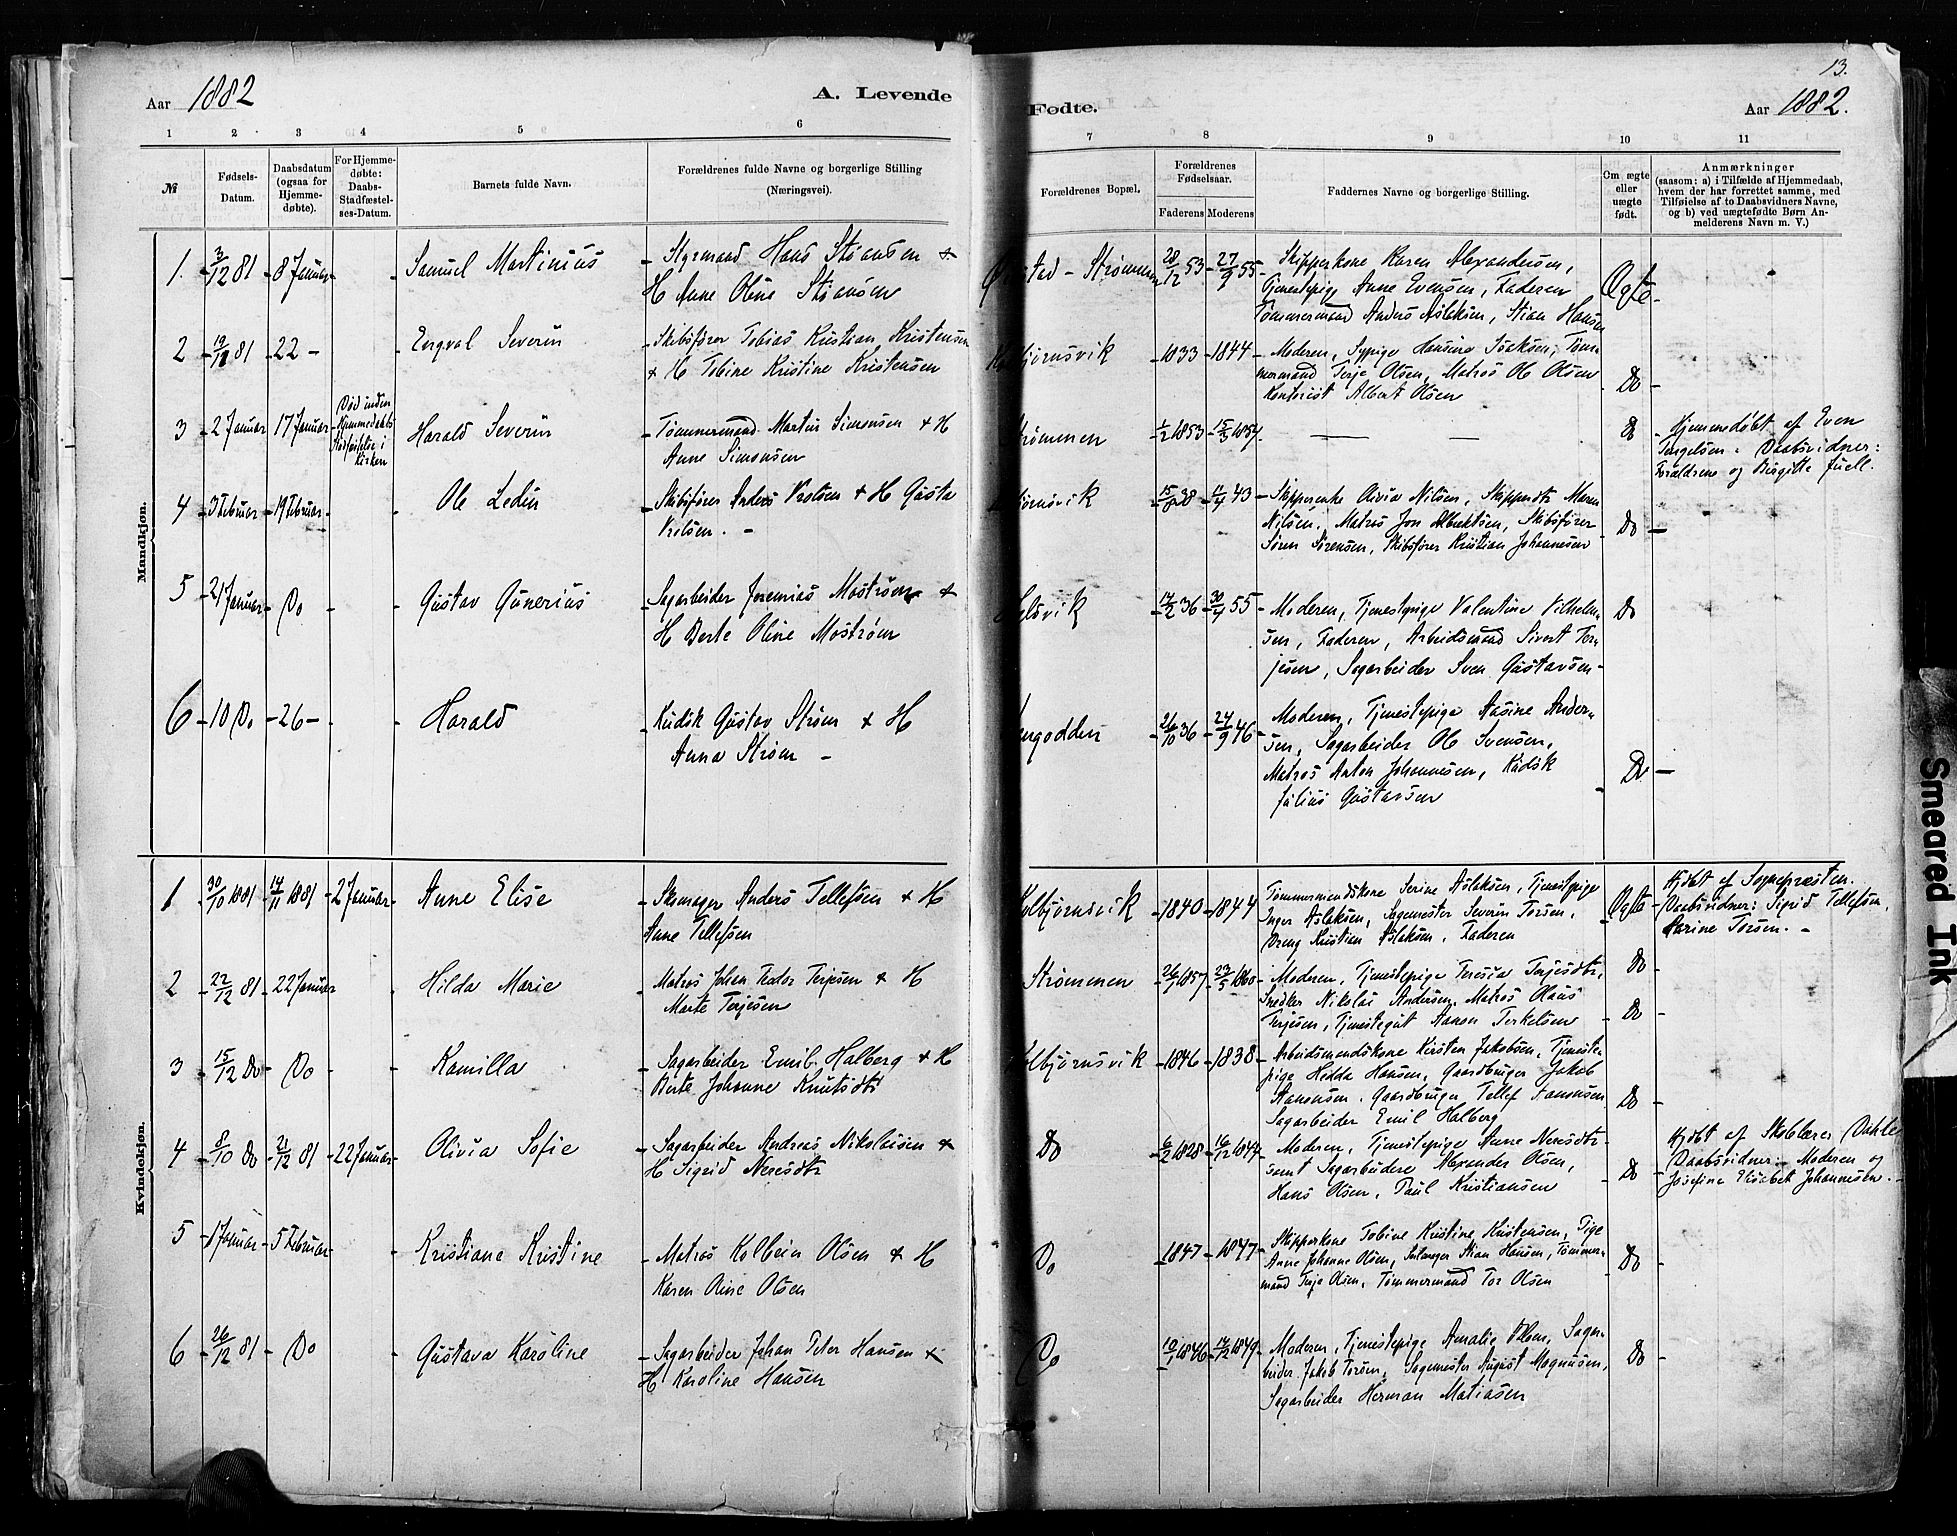 13.
Aar 1882
A. Levende
Fødte.
Aar 1882.
1 2 3 4 5 6 7 8 9 10 11
№
Fødsels-
Datum.
Daabsdatum
(ogsaa for
Hjemme-
døbte).
For Hjemme-
døbte:
Daabs-
Stadfæstel-
ses-Datum.
Barnets fulde Navn.
Forældrenes fulde Navne og borgerlige Stilling
(Næringsvei).
Forældrenes Bopæl,
Forældrenes
Fødselsaar.
Faderens Moderens
Faddernes Navne og borgerlige Stilling.
Om ægte
eller
uægte
født.
Anmærkninger
(saasom: a) i Tilfælde af Hjemmedaab,
hvem der har forrettet samme, med
Tilføielse af to Daabsvidners Navne,
og b) ved uægtefødte Børn An-
melderens Navn m. V.)
Mandkjøn.
1. 3/12 81 8 Januar Samuel Martinius
Styrmand Hans Stiansen +
H Anne Oline Stiansen
stad - Strømmen
28/12 53 27/9 55
Skipperkone Karen Alexandersen,
Tjenestepige Anne Evensen, Faderen
Tømmermand Anders Aslaksen, Stian Hansen
Ægte
2 81 22 - Engval Severin
Skibsfører Tobias Kristian Kristensen
+ H Tobine Kristine Kristensen
bjørnsvik
1833 1844
Moderen, Sypige Hansine Isaksen, Tøm-
mermand Terje Olsen, Matros Ole Olsen
Kontorist Albert Olsen
Do
3 2 Januar 17 Januar
Død inden
Hjemmedaabs
Stadfæstelse i
Kirken
Harald Severin
Tømmermand Martin Simonsen + H
Anne Simonsen
Strømmen
1/2 1853 15/3 1857
Do
Hjemmedøbt af Even
Tengelsen. Daabsvidner:
Forældrene og Birgitte Juell.
4 3 Februar 19 Februar Ole Ledin
Skibsfører Anders Nilsen + H Gusta
Nilsen.
bjørnsvik
38 11/4 43
Skipperenke Olivia Nilsen, Skipperdtr Maren
Nilsen, Matros Jon Albrektsen, Skibsfører
Søren Sørensen, Skibsfører Kristian Johannesen
Do
5 21 Januar Do Gustav Gunerius
Sagarbeider Jeremias Mostrøm +
H Berte Oline Mostrøm
vik
17/2 36 30/4 55
Moderen, Tjenestepige Valentine Vilhelm-
sen, Faderen, Arbeidsmand Sivert Ter-
jesen, Sagarbeider Sven Gustavsen
Do
6 10 Do 26 Harald
Kudsk Gustav Strøm + H
Anna Strøm
engodden
26/10 36 24/9 46
Moderen, Tjenestepige Aasine Ander-
sen, Sagarbeider Ole Svensen,
Matros Anton Johannesen, Kudsk
Julius Gustavsen
Do
Kvindekjøn.
1 30/10 1881 14/11 1881 2 Januar Anne Elise
Skomager Anders Tellefsen + H
Anne Tellefsen
Kolbjørnsvik
1840 1844
Tømmermandskone Serine Aslaksen, Tjenestepige
Inger Aslaksen, Sagmester Severin Torsen,
Dreng Kristian Aslaksen, Faderen
Ægte
Hjdøbt af Sognepresten.
Daabsvidner: Sigrid Tellefsen,
Karine Torsen.
2 22/12 81 22 Januar Hilda Marie
Matros Johan Teodor Terjesen + H
Marte Terjesen
Strømmen
26/1 1857 23/5 1860
Moderen, Tjenestepige Teresia Terjesdtr,
Snedker Nikolai Andersen, Matros Olaus
Terjesen, Tjenestegut Aanon Terkelsen
Do
Do
3 15/12 Do Do Kamilla
Sagarbeider Emil Halberg + H
Berte Johanne Knutsdtr
Kolbjørnsvik
1846 1838
Arbeidsmandskone Kirsten Jakobsen, Tjeneste-
pige Hilda Hansen, Gaardbruger Jakob
Aanonsen, Gaardbruger Tellef Aanonsen
Sagarbeider Emil Halberg
Do
4 8/10 Do 21/12 81 22 Januar Olivia Sofie
Sagarbeider Andreas Nikolaisen +
H Sigrid Neresdtr
Do
6/2 1828 16/12 1847
Moderen, Tjenestepige Anne Neresdtr
samt Sagarbeidere Alexander Olsen,
Hans Olsen, Paul Kristiansen
Do
Hjdøbt af Skolelærer Dahle
Daabsvidner: Moderen og
Josefine Elisabet Johannesen.
5 1 Januar 5 Februar Kristiane Kristine
Matros Kolbein Olsen + H
Karen Oline Olsen
Do
1847 1847
Skipperkone Tobine Kristine Kristensen, Pige
Anne Johanne Olsen, Stian Hansen, Tømmer-
mand Terje Olsen, Tømmermand Tor Olsen
Do
6 26/12 81 Do Gustava Karoline
Sagarbeider Johan Peter Hansen +
H Karoline Hansen
Do
10/1 1846 17/12 1849
Moderen, Tjenestepige Amalie Olsen, Sagar-
beider Jakob Torsen, Sagmester August Magnusen,
Sagarbeider Herman Matiasen
Do
Smeared Ink